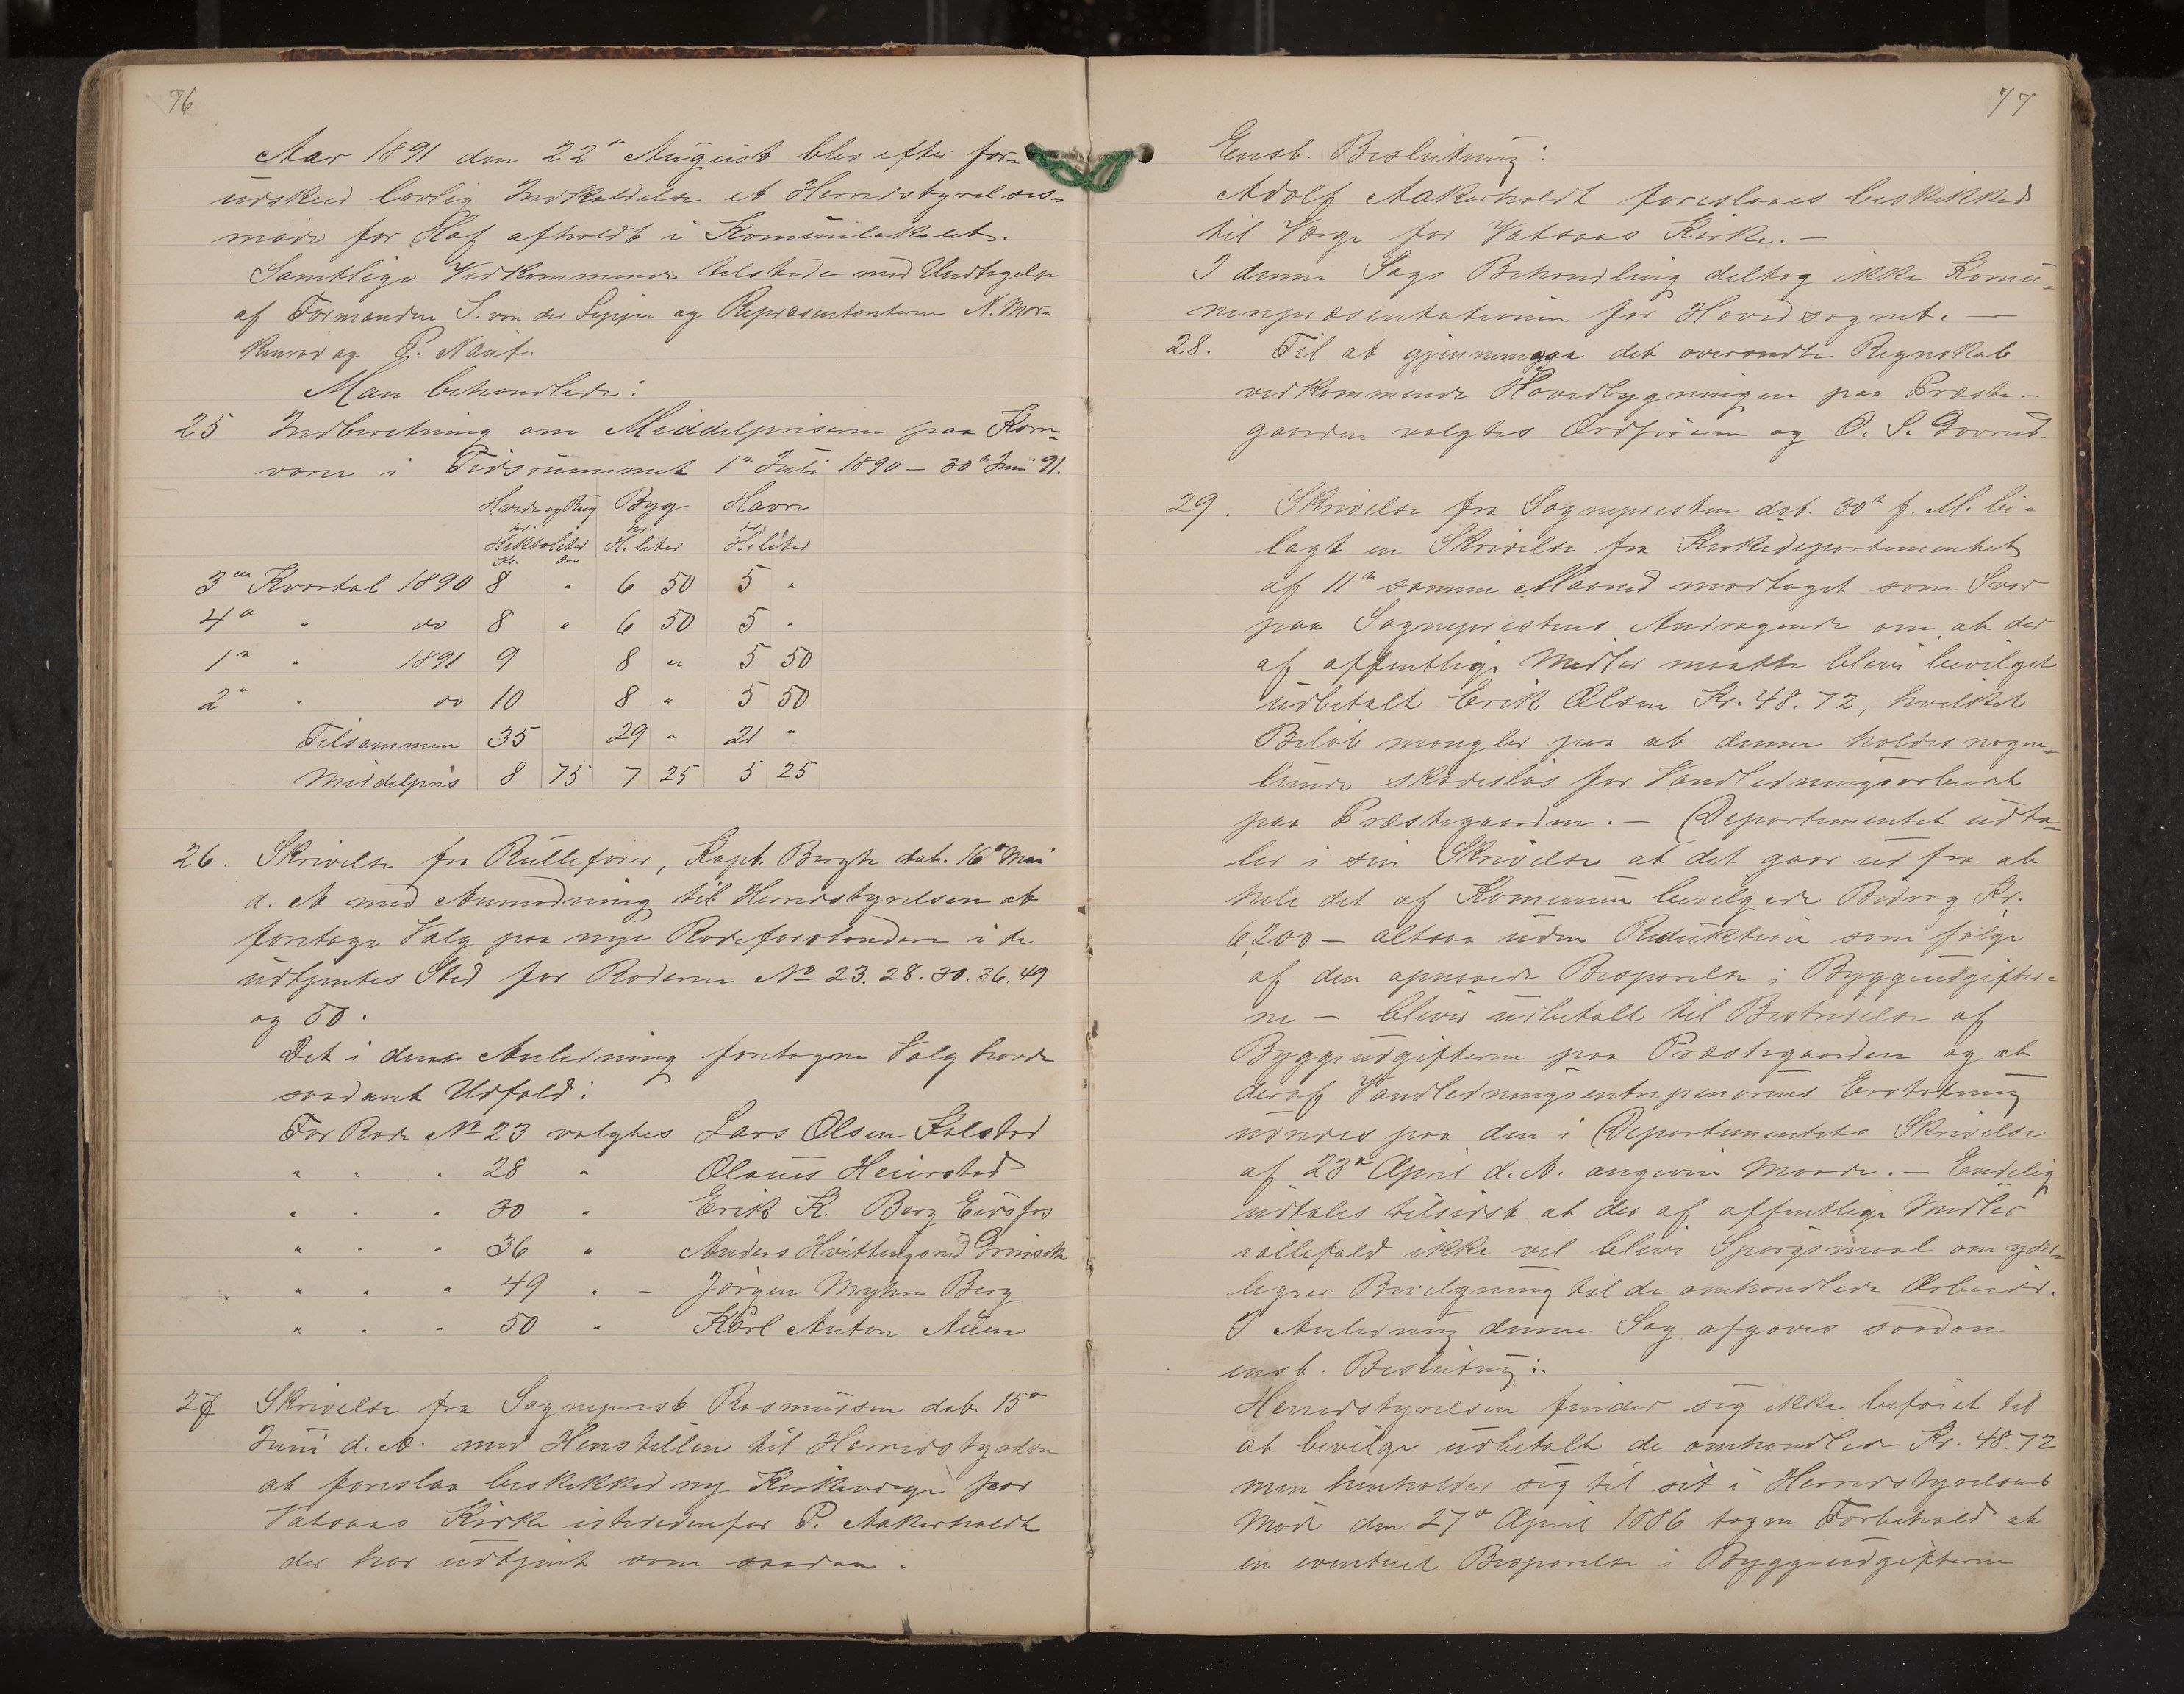 76
Aar 1891 den 22ᵃ August blev efter for-
udskeed lovlig Indkaldelse et Herredstyrelses-
møde for Hof afholdt i Komunelokalet.
Samtlige Vedkommende tilstede med Undtagelse
af Formanden S. von der Lippe og Repræsentanterne N. Mør-
kerød og P. Næif.
Man behandlede:
25 Indberetning om Middelpriserne paa Korn-
varer i Tidsrummet 1ᵃ Juli 1890 – 30ᵃ Juni 91.
Hvede og Rug Byg Havre
pr. pr. pr.
Hektoliter H. liter H. liter
Kr. Øre
3die Kvartal 1890 8 " 6 50 5 "
4ᵃ " do 8 " 6 50 5 "
1ᵃ " 1891 9 8 " 5 50
2ᵃ " do 10 8 " 5 50
Tilsammen 35 29 " 21 "
Middelpris 8 75 7 25 5 25
26. Skrivelse fra Rullefører, Kapt. Bergh dat. 16ᵃ Mai
d. A. med Anmodning til Herredstyrelsen at
foretage Valg paa nye Rodeforstandere i de
udtjentes Sted for Roderne No 23. 28. 30. 36. 49
og 50.
Det i denne Anledning foretagne Valg havde
saadant Udfald:
For Rode No 23 valgtes Lars Olsen Kalstad
" " " 28 " Olaus Heierstad
" " " 30 " Erik K. Berg Eidsfos
" " " 36 " Anders Hvittingsrud
" " " 49 " – Jørgen Myhre Berg
" " " 50 " Karl Anton Auen
27 Skrivelse fra Sogneprest Rasmussen dat. 15ᵃ
Juni d. A. med Henstillen til Herredstyrelsen
at foreslaa beskikket ny Kirkeverge for
Vatsaas Kirke istedenfor P. Aakerholdt
der har udtjent som saadan.
77
Enst. Beslutning:
Adolf Aakerholdt foreslaaes beskikket
til Verge for Vatsaas Kirke. –
I denne Sags Behandling deltog ikke Komu-
nerepræsentationen for Hovedsognet. –
28. Til at gjennemgaa det oversendte Regnskab
vedkommende Hovedbygningen paa Præste-
gaarden valgtes Ordføreren og O. S.
29. Skrivelse fra Sognepresten dat. 30ᵃ f. M. bi-
lagt en Skrivelse fra Kirkedepartementet
af 11ᵃ samme Maaned modtaget som Svar
paa Sogneprestens Andragende om, at der
af offentlige Midler maatte blive bevilget
udbetalt Erik Olsen Kr. 48.72, hvilket
Beløb mangler paa at denne holdes nogen-
lunde skadesløs for Vandledningsarbeidet
paa Præstegaarden. – Departementet udta-
ler i sin Skrivelse at det gaar ud fra at
hele det af Komunen bevilgede Bidrag Kr.
6,200 – altsaa uden Reduktion som følge
af den opnaaede Besparelse i Byggeudgifter-
ne – bliver udbetalt til Bestridelse af
Byggeudgifterne paa Præstegaarden og at
deraf Vandledningsentreprenørens Erstatning
udredes paa den i Departementets Skrivelse
af 23ᵃ April d. A. angivne Maade. – Endelig
udtales tilsidst at der af offentlige Midler
iallefald ikke vil blive Spørgsmaal om yder-
ligere Bevilgning til de omhandlede Arbeider.
I Anledning denne Sag afgaves saadan
enst. Beslutning:
Herredstyrelsen finder sig ikke beføiet til
at bevilge udbetalt de omhandlede Kr. 48.72
men henholder sig til sit i Herredstyrelsens
Møde den 27ᵃ April 1886 tagne Forbehold at
en eventuel Besparelse i Byggeudgifterne